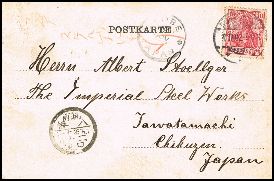 POSTKARTE
Herrn Albert Stoellger
The Imperial Steel Works
Tawatamachi
Chikuzen
Japan